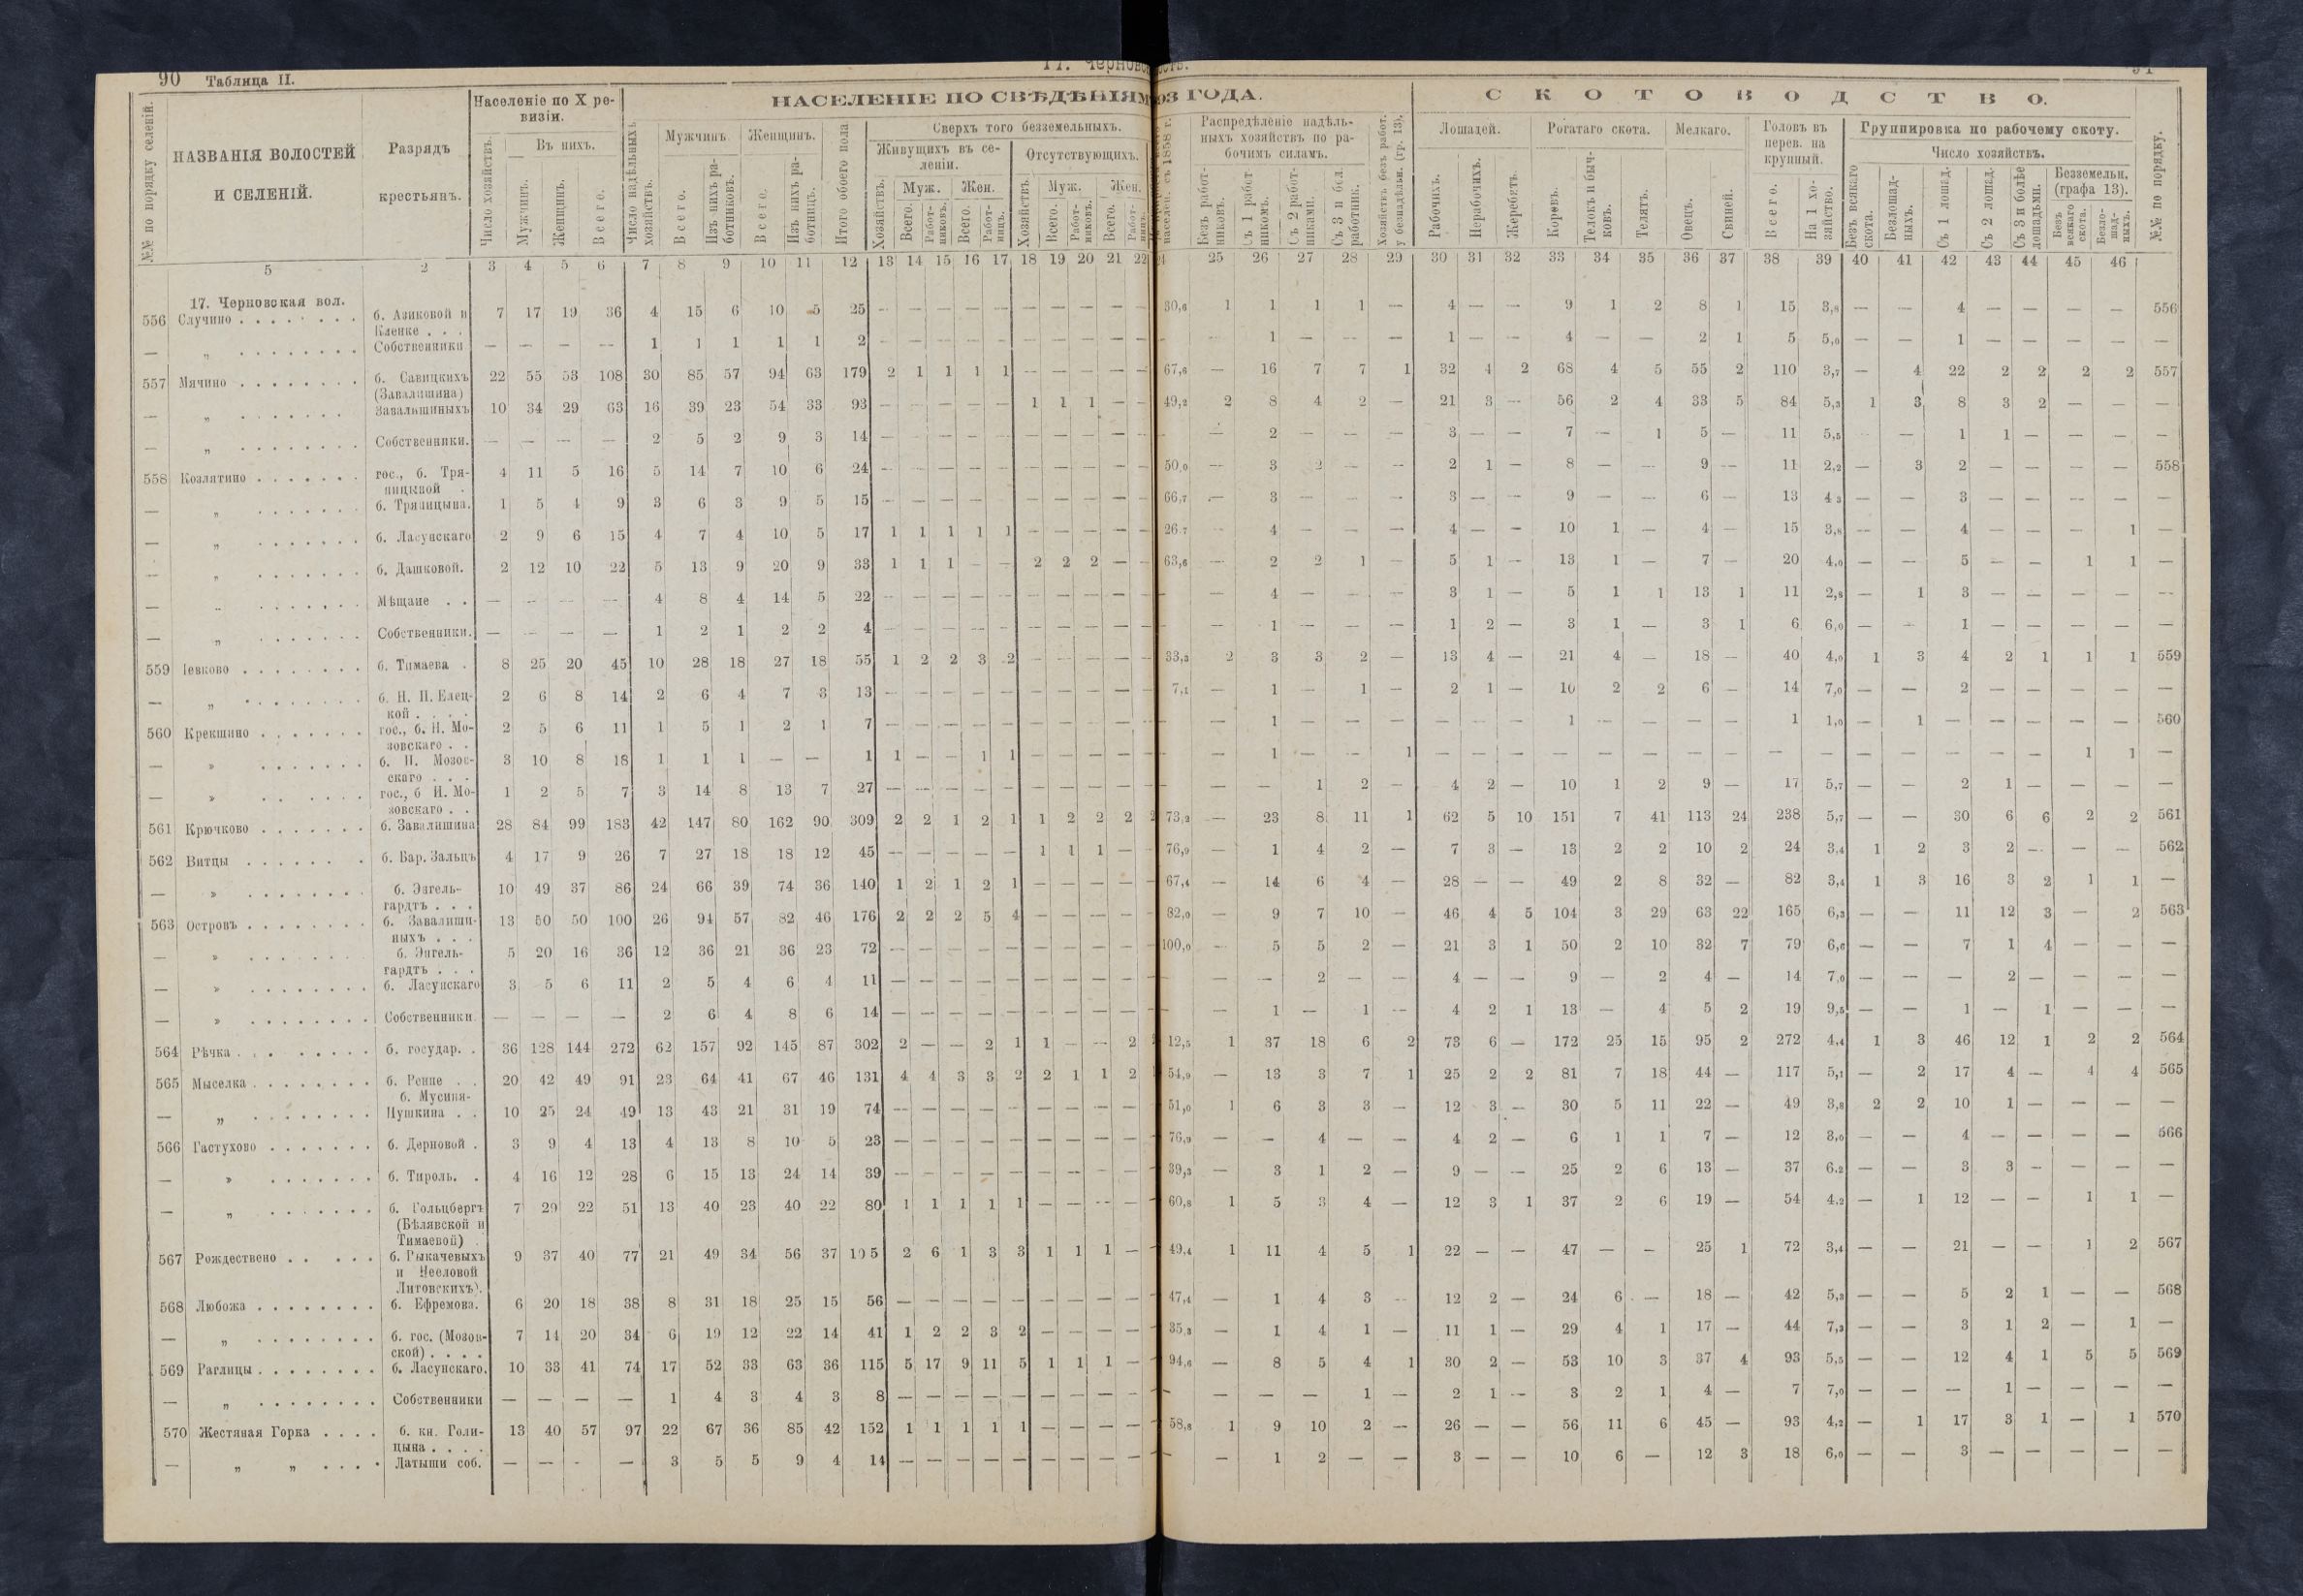 90 Таблица II.
Населеніе по X ревизіи.
НАСЕЛЕНІЕ ПО СВѢДѢНІЯМ
№№ по порядку селеній.
НАЗВАНІЯ ВОЛОСТЕЙ
И СЕЛЕНІЙ.
Разрядъ
крестьянъ.
Число хозяйствъ.
Въ нихъ.
Мужчинъ.
Женщинъ.
Всего.
Число надѣльныхъ хозяйствъ.
Мужчинъ.
Всего.
Изъ нихъ работниковъ.
Женщинъ.
Всего.
Изъ нихъ работницъ.
Итого обоего пола
Сверхъ того безземельныхъ.
Живущихъ въ селеніи.
Отсутствующихъ.
Хозяйствъ.
Муж.
Жен.
Всего.
Работниковъ.
Всего.
Работницъ.
Хозяйствъ.
Муж.
Жен.
Всего.
Работниковъ.
Всего.
5 2 3 4 5 6 7 8 9 10 11 12 13 14 15 16 17 18 19 20 21 22
17. Черновская вол.
556 Случино . . . . . . . . б. Азиковой и Кленке . . . 7 17 19 36 4 15 6 10 5 25 — — — — — — — — — —
— „ . . . . . . . . Собственники — — — — 1 1 1 1 1 2 — — — — — — — — — —
557 Мячино . . . . . . . . б. Савицкихъ (Завалишина) 22 55 53 108 30 85 57 94 63 179 2 1 1 1 1 — — — — —
— „ . . . . . . . Завалишиныхъ 10 34 29 63 16 39 23 54 33 93 — — — — — 1 1 1 — —
— „ . . . . . . . . Собственники. — — — — 2 5 2 9 3 14 — — — — — — — — — —
558 Козлятино . . . . . . . гос., б. Тряпицыной . 4 11 5 16 5 14 7 10 6 24 — — — — — — — — — —
— „ . . . . . . . б. Тряпицына. 1 5 4 9 3 6 3 9 5 15 — — — — — — — — — —
— „ . . . . . . . б. Ласунскаго 2 9 6 15 4 7 4 10 5 17 1 1 1 1 1 — — — — —
— „ . . . . . . . б. Дашковой. 2 12 10 22 5 13 9 20 9 33 1 1 1 — — 2 2 2 — —
— „ . . . . . . . Мѣщане . . — — — — 4 8 4 14 5 22 — — — — — — — — — —
— „ . . . . . . . Собственники. — — — — 1 2 1 2 2 4 — — — — — — — — — —
559 Іевково . . . . . . . . б. Тимаева . 8 25 20 45 10 28 18 27 18 55 1 2 2 3 2 — — — — —
— „ . . . . . . . . б. Н. П. Елецкой . . . . 2 6 8 14 2 6 4 7 3 13 — — — — — — — — — —
560 Крекшино . . . . . . . гос., б. Н. Мозовскаго . . 2 5 6 11 1 5 1 2 1 7 — — — — — — — — — —
— » . . . . . . . б. П. Мозовскаго . . . 3 10 8 18 1 1 1 — — 1 1 — — 1 1 — — — — —
— » . . . . . . гос., б Н. Мозовскаго . . 1 2 5 7 3 14 8 13 7 27 — — — — — — — — — —
561 Крючково . . . . . . . б. Завалишина 28 84 99 183 42 147 80 162 90 309 2 2 1 2 1 1 2 2 2 2
562 Витцы . . . . . . . б. Вар. Зальцъ 4 17 9 26 7 27 18 18 12 45 — — — — — 1 1 1 — —
— » . . . . . . . . б. Энгельгардтъ . . . 10 49 37 86 24 66 39 74 36 140 1 2 1 2 1 — — — — —
563 Островъ . . . . . . . . б. Завалишиныхъ . . . 13 50 50 100 26 94 57 82 46 176 2 2 2 5 4 — — — — —
— » . . . . . . . . б. Энгельгардтъ . . . 5 20 16 36 12 36 21 36 23 72 — — — — — — — — — —
— » . . . . . . . . б. Ласунскаго 3 5 6 11 2 5 4 6 4 11 — — — — — — — — — —
— » . . . . . . . . Собственники. — — — — 2 6 4 8 6 14 — — — — — — — — — —
564 Рѣчка . . . . . . . . б. государ. . 36 128 144 272 62 157 92 145 87 302 2 — — 2 1 1 — — 2
565 Мыселка . . . . . . . . б. Ренне . . 20 42 49 91 23 64 41 67 46 131 4 4 3 3 2 2 1 1 2
— „ . . . . . . . . б. Мусина-Пушкина . . 10 25 24 49 13 43 21 31 19 74 — — — — — — — — — —
566 Гастухово . . . . . . . б. Дерновой . 3 9 4 13 4 13 8 10 5 23 — — — — — — — — — —
— » . . . . . . . б. Тироль. . 4 16 12 28 6 15 13 24 14 39 — — — — — — — — — —
— „ . . . . . . . б. Гольцбергъ (Бѣлявской и Тимаевой) . 7 29 22 51 13 40 23 40 22 80 1 1 1 1 1 — — — — —
567 Рождествено . . . . . б. Рыкачевыхъ и Нееловой Литовскихъ). 9 37 40 77 21 49 34 56 37 105 2 6 1 3 3 1 1 1 — —
568 Любожа . . . . . . . . б. Ефремова. 6 20 18 38 8 31 18 25 15 56 — — — — — — — — — —
— „ . . . . . . . . б. гос. (Мозовской) . . . . 7 14 20 34 6 19 12 22 14 41 1 2 2 3 2 — — — — —
569 Раглицы . . . . . . . . б. Ласунскаго. 10 33 41 74 17 52 33 63 36 115 5 17 9 11 5 1 1 1 — —
— „ . . . . . . . . Собственники — — — — 1 4 3 4 3 8 — — — — — — — — — —
570 Жестяная Горка . . . . б. кн. Голицына . . . . 13 40 57 97 22 67 36 85 42 152 1 1 1 1 1 — — — — —
— „ „ . . . . Латыши соб. — — — — 3 5 5 9 4 14 — — — — — — — — — —
93 ГОДА.
СКОТОВОДСТВО.
Распредѣленіе надѣльныхъ хозяйствъ по рабочимъ силамъ.
Безъ работниковъ.
Съ 1 работникомъ.
Съ 2 работниками.
Съ 3 и бол. работник.
Хозяйствъ безъ работ. у безнадѣльн. (гр. 13).
Лошадей.
Рабочихъ.
Нерабочихъ.
Жеребятъ.
Рогатаго скота.
Коровъ.
Телокъ и бычковъ.
Телятъ.
Мелкаго.
Овецъ.
Свиней.
Головъ въ перев. на крупный.
Всего.
На 1 хозяйство.
Группировка по рабочему скоту.
Число хозяйствъ.
Безъ всякаго скота.
Безлошадныхъ.
Съ 1 лошад.
Съ 2 лошад.
Съ 3 и болѣе лошадьми.
Безземельн. (графа 13).
Безъ всякаго скота.
Безлошадныхъ.
№№ по порядку.
25 26 27 28 29 30 31 32 33 34 35 36 37 38 39 40 41 42 43 44 45 46
30,6 1 1 1 1 — 4 — — 9 1 2 8 1 15 3,8 — — 4 — — — — 556
— 1 — — — 1 — — 4 — — 2 1 5 5,0 — — 1 — — — —
67,6 — 16 7 7 1 32 4 2 68 4 5 55 2 110 3,7 — 4 22 2 2 2 2 557
49,2 2 8 4 2 — 21 3 — 56 2 4 33 5 84 5,3 1 3 8 3 2 — — —
— 2 — — — 3 — — 7 — 1 5 — 11 5,5 — — 1 1 — — — —
50,0 — 3 2 — — 2 1 — 8 — — 9 — 11 2,2 — 3 2 — — — — 558
66,7 — 3 — — — 3 — — 9 — — 6 — 13 4,3 — — 3 — — — — —
26,7 — 4 — — — 4 — — 10 1 — 4 — 15 3,8 — — 4 — — — 1 —
63,6 — 2 2 1 — 5 1 — 13 1 — 7 — 20 4,0 — — 5 — — 1 1 —
— 4 — — — 3 1 — 5 1 1 13 1 11 2,8 — 1 3 — — — — —
— 1 — — — 1 2 — 3 1 — 3 1 6 6,0 — — 1 — — — — —
33,3 2 3 3 2 — 13 4 — 21 4 — 18 — 40 4,0 1 3 4 2 1 1 1 559
7,1 — 1 — 1 — 2 1 — 10 2 2 6 — 14 7,0 — — 2 — — — — —
— 1 — — — — — — 1 — — — — 1 1,0 — 1 — — — — — 560
— 1 — — 1 — — — — — — — — — — — — — — — 1 1 —
— — 1 2 — 4 2 — 10 1 2 9 — 17 5,7 — — 2 1 — — — —
73,2 — 23 8 11 1 62 5 10 151 7 41 113 24 238 5,7 — — 30 6 6 2 2 561
76,9 — 1 4 2 — 7 3 — 13 2 2 10 2 24 3,4 1 2 3 2 — — — 562
67,4 — 14 6 4 — 28 — — 49 2 8 32 — 82 3,4 1 3 16 3 2 1 1 —
82,0 — 9 7 10 — 46 4 5 104 3 29 63 22 165 6,3 — — 11 12 3 — 2 563
100,0 — 5 5 2 — 21 3 1 50 2 10 32 7 79 6,6 — — 7 1 4 — — —
— — 2 — — 4 — — 9 — 2 4 — 14 7,0 — — — 2 — — — —
— 1 — 1 — 4 2 1 13 — 4 5 2 19 9,5 — — 1 — 1 — — —
12,5 1 37 18 6 2 73 6 — 172 25 15 95 2 272 4,4 1 3 46 12 1 2 2 564
54,9 — 13 3 7 1 25 2 2 81 7 18 44 — 117 5,1 — 2 17 4 — 4 4 565
51,0 1 6 3 3 — 12 3 — 30 5 11 22 — 49 3,8 2 2 10 1 — — — —
76,9 — — 4 — — 4 2 — 6 1 1 7 — 12 3,0 — — 4 — — — — 566
39,3 — 3 1 2 — 9 — — 25 2 6 13 — 37 6,2 — — 3 3 — — — —
60,8 1 5 3 4 — 12 3 1 37 2 6 19 — 54 4,2 — 1 12 — — 1 1 —
49,4 1 11 4 5 1 22 — — 47 — — 25 1 72 3,4 — — 21 — — 1 2 567
47,4 — 1 4 3 — 12 2 — 24 6 — 18 — 42 5,3 — — 5 2 1 — — 568
35,3 — 1 4 1 — 11 1 — 29 4 1 17 — 44 7,3 — — 3 1 2 — 1 —
94,6 — 8 5 4 1 30 2 — 53 10 3 37 4 93 5,5 — — 12 4 1 5 5 569
— — — — 1 — 2 1 — 3 2 1 4 — 7 7,0 — — — 1 — — — —
58,8 1 9 10 2 — 26 — — 56 11 6 45 — 93 4,2 — 1 17 3 1 — 1 570
— — 1 2 — — 3 — — 10 6 — 12 3 18 6,0 — — 3 — — — — —